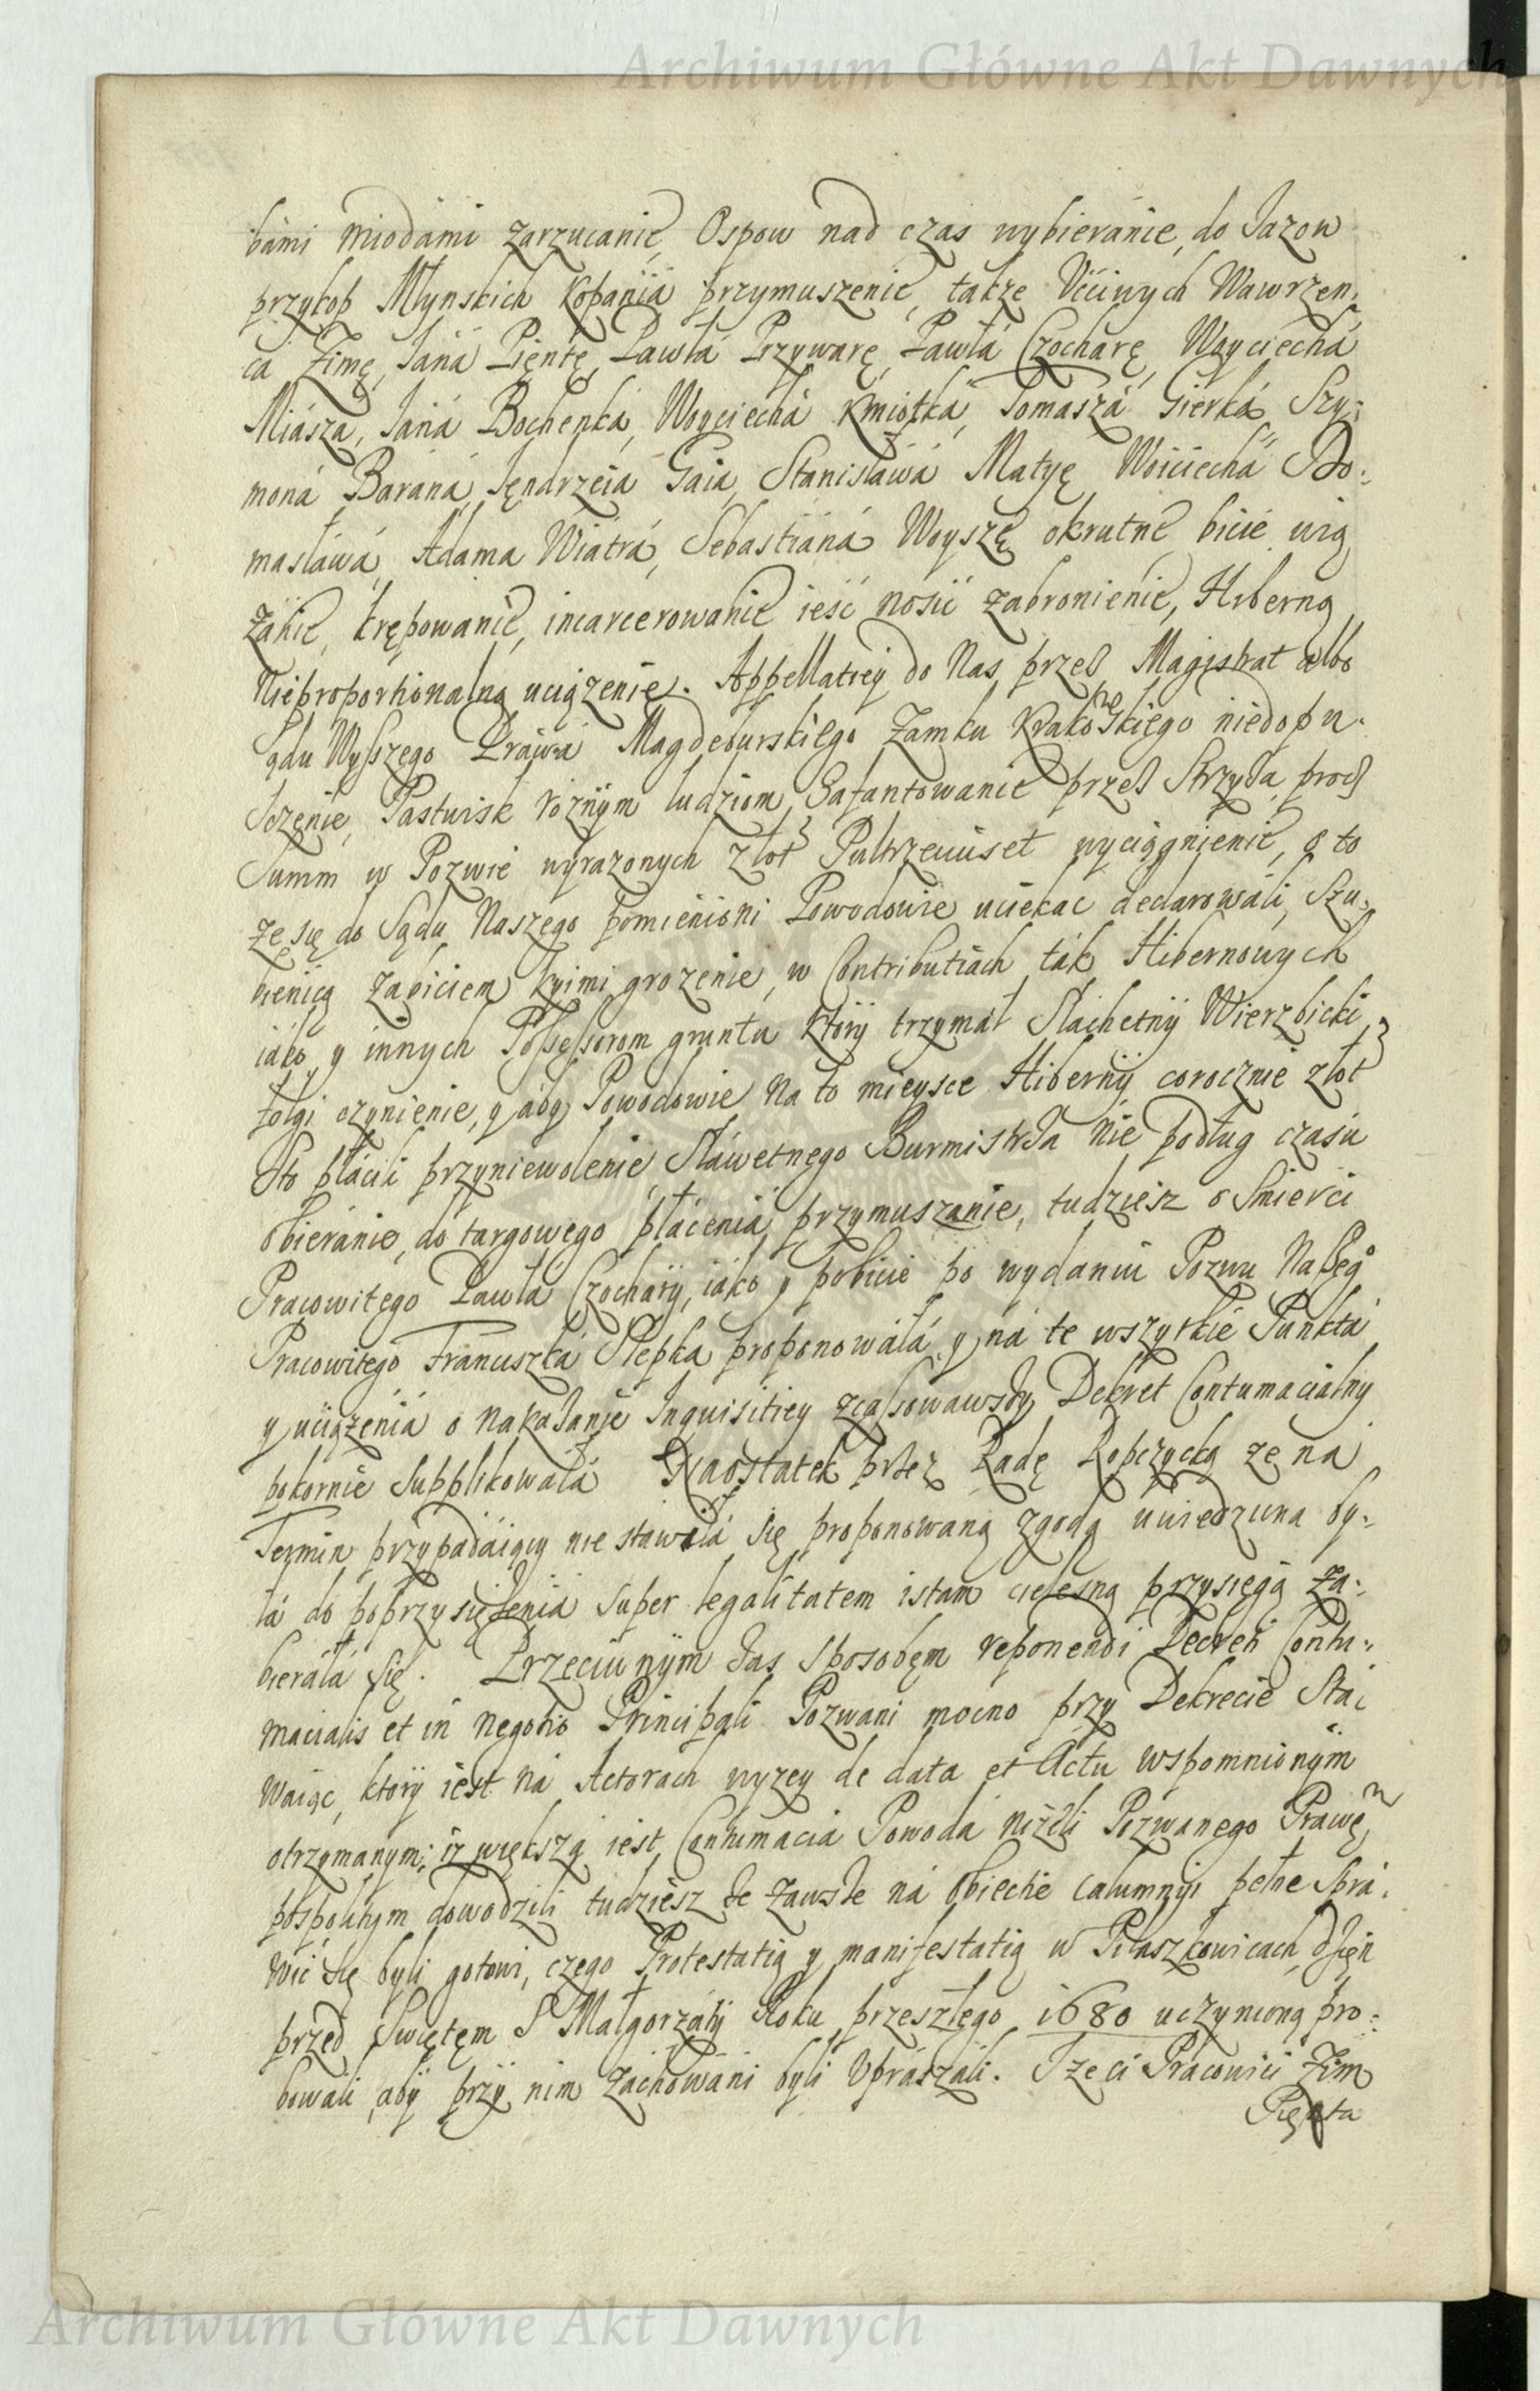 Archiwum Główne Akt Dawnych
bami miodami zarzucanie, Ospow nad czas wybieránie, do Jazow
przykop Młynskich kopania przymuszenie, także Ućciwych Wawrzen,
cá Zimę, Janá Pięntę, Pawłá Przywarę, Pawłá Czocharę, Woyciechá
Miásza, Janá Bochenká, Woyciechá Kmiotká, Tomaszá Gierká, Szy:
moná Baraná, Jęndrzeiá Gaiá, Stanisławá Matyę, Woiciechá Do:
masławá, Adama Wiatrá, Sebastianá Woyszę okrutne bicie wią,
zánie, krępowanie, incarcerowanie ieść nosić zabronienie, Hiberną
Nieproportionalną uciązenie. Appellatiey do Nas przez Magistrat albo
Sądu Wyszego Práwa Magdeburskiego Zamku Krakowskiego niedopu:
sczenie, Pastwisk roznym ludziom Zafantowanie przez Strzyża, procz
Summ w Pozwie wyrazonych złot Pułtrzeciaset wyciągnienie, o to
ze się do Sądu Naszego pomienioni Powodowie uciekac declarowali, Szu:
bienicą zabiciem kyimi grozenie, w Contributiach ták Hibernowych
iáko y innych Possessorom gruntu ktory trzymał Slachetny Wierzbicki
folgi czynienie, y aby Powodowie Na to mieysce Hiberny corocznie złot
Sto płácili przyniewolenie, Sláwetnego Burmistrza nie podług czasu
obieránie, do targowego płácenia przymuszanie, tudziesz o Smierci
Pracowitego Pawłá Czochary, iáko y pobicie po wydaniu Pozwu Naszego
Pracowitego Franciszká Slepka proponowálá, y ná te wszytkie Punktá
y uciązeniá o nakazanie Inquisitiey zcassowawszy Dekret Contumacialny
pokornie Supplikowałá Naostatek przez Radę Ropczycką ze ná
Termin przypadáiący nie stawiłá się proponowaną zgodą uwiedziona by:
łá do poprzysiężenia super legalitatem istam cielesną przysięgą zá:
bieráłá się. Przeciwnym zas sposobem reponendi Decreti Contu:
macialis et in negotio Principali Pozwani mocno przy Dekrecie Stá:
waiąc, ktory iest ná Actorach wyzey de data et Actu wspomnionym
otrzymanym; iz większą iest Contumacia Powodá niżeli Pozwanego Prawem
pospolitym dowodzili tudziesz że zawsze ná obiectie calumnyi pełne Sprá:
wić się byli gotowi, czego Protestatią y manifestatią w Pitaszkowicach, dzień
przed Swiętem S Małgorzáty Roku przeszłego 1680 uczynioną pro:
bowáli, aby przy nim záchowáni byli Upraszáli. Trzeci Pracowici Zim
Pięnta
Archiwum Główne Akt Dawnych